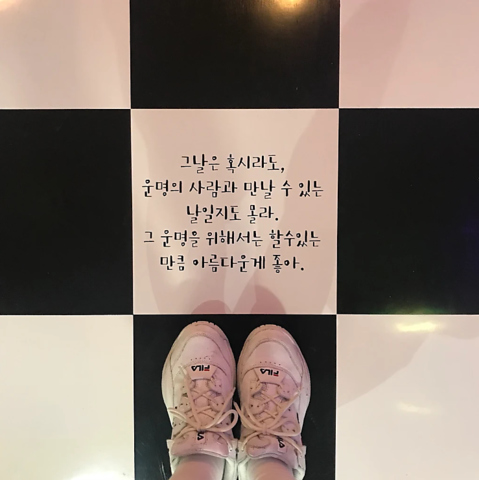 그날은 혹시라도,
운명의 사람과 만날 수 있는
날일지도 몰라.
그 운명을 위해서는 할수있는
만큼 아름다운게 좋아.
FILA
FILA